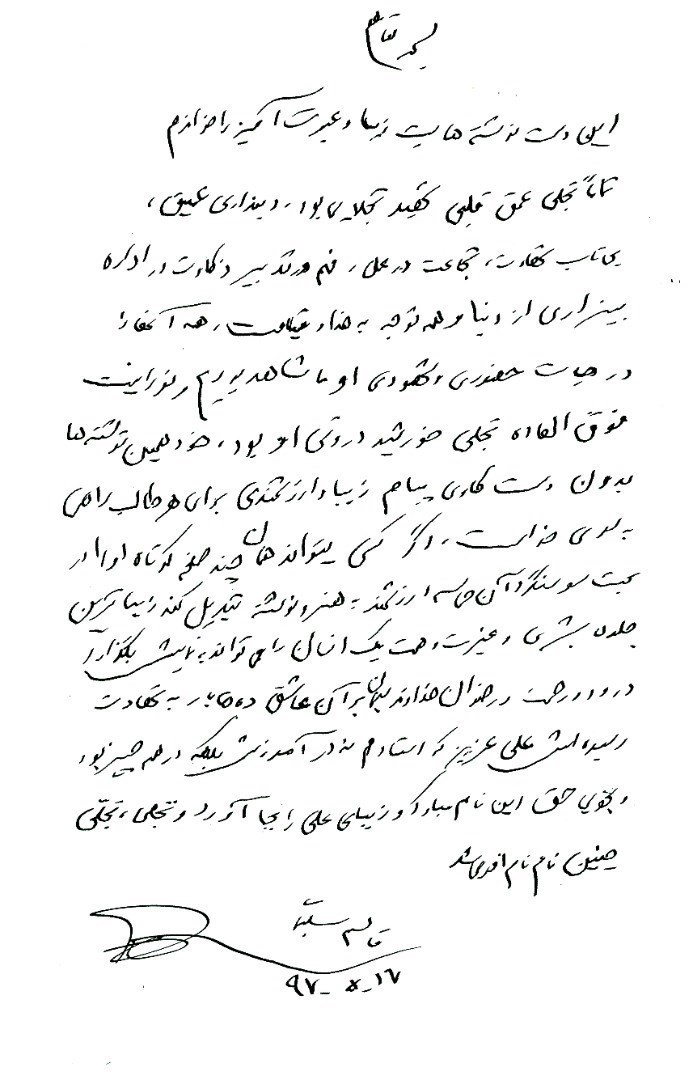 بسمه تعالی
این دست نوشته های زیبا و عبرت آمیز را خواندم
تماماً تجلی عمق قلبی شهید تجلایی بود، دینداری عمیق،
بی‌تاب شهادت، شجاعت در عمل، فهم و تدبیر و ذکاوت در اداره
بیزاری از دنیا و همه توجه به خدا و قیامت، همه آنها را
در حیات حضوری و شهودی او ما شاهد بودیم، نورانیت
فوق العاده تجلی خورشید در روی او بود، خود همین نوشته‌ها
بدون دست کاری پیام زیبا و ارزشمندی برای هر طالب راهی
به سوی خداست، اگر کسی بتواند همان چند صفحه کوتاه او را در
سوسنگرد آن حماسه ارزشمند به هنر و نوشته تبدیل کند زیباترین
جلوه بشری و غیرت و همت یک انسان را می تواند به نمایش بگذارد
درود و رحمت و رضوان خداوند سبحان بر آن عاشق به شهادت
رسیده‌اش علی عزیز که استادم نه در آموزش بلکه در همه چیز بود
و بخوبی حق این نام مبارک و زیبای علی را بجا آورد و تجلی، تجلّی
چنین نام نام آوری شد
قاسم سلیمانی
۹۷-۸-۱۶